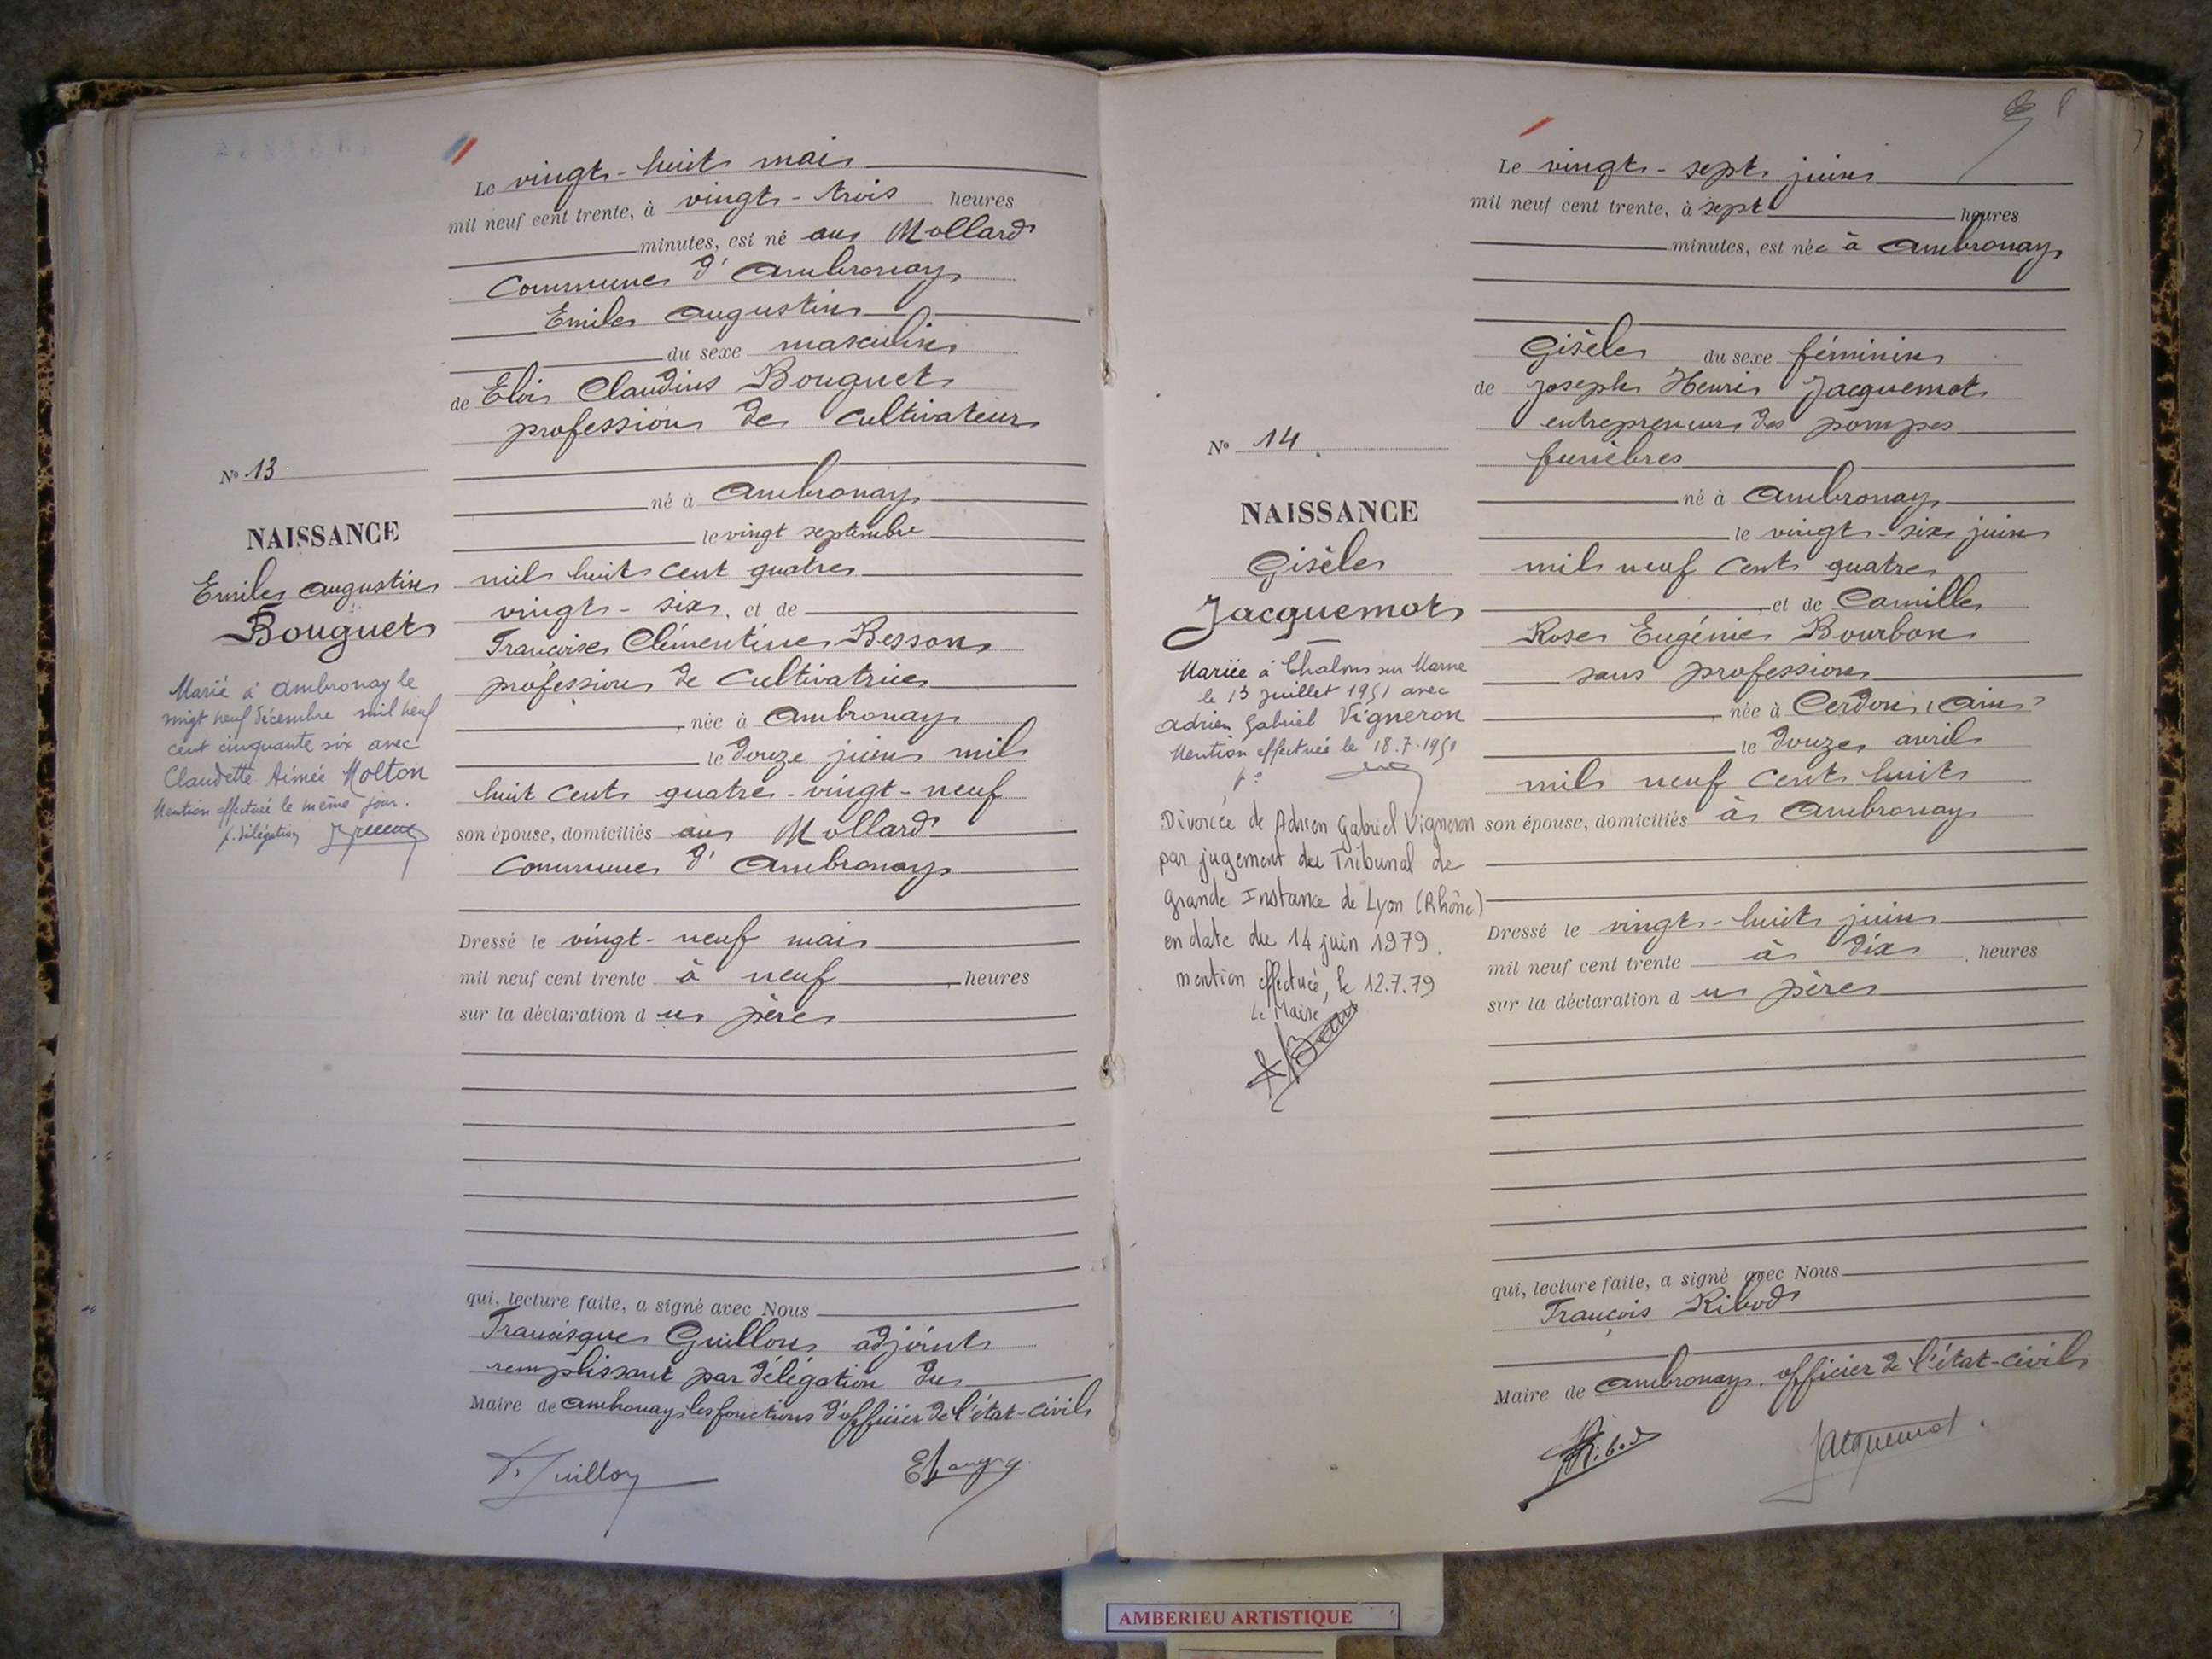 Le vingt-huit mai
mil neuf cent trente, à vingt-trois heures
minutes, est né au Mollard
commune d'Ambronay
Emile Augustin
du sexe masculin
de Eloi Claudius Bouguet
profession de cultivateur
né à Ambronay
le vingt septembre
mil huit cent quatre
vingt-six, et de
Françoise Clémentine Besson
profession de cultivatrice
née à Ambronay
le douze juin mil
huit cent quatre-vingt-neuf
son épouse, domiciliés au Mollard
commune d'Ambronay
Dressé le vingt-neuf mai
mil neuf cent trente à neuf heures
sur la déclaration du père
qui, lecture faite, a signé avec Nous
Francisque Guillon adjoint
remplissant par délégation du
Maire de Ambronay les fonctions d'officier de l'état-civil
Guillon
No 13
NAISSANCE
Emile Augustin
Bouguet
Marié à Ambronay le
vingt neuf décembre mil neuf
cent cinquante six avec
Claudette Aimée Molton
Mention effectuée le même jour.
p. délégation
8
Le vingt-sept juin
mil neuf cent trente, à sept heures
minutes, est née à Ambronay
Gisèle du sexe féminin
de Joseph Henri Jacquemot
entrepreneur des pompes
funèbres
né à Ambronay
le vingt-six juin
mil neuf cent quatre
, et de Camille
Rose Eugénie Bourbon
sans profession
née à Cerdon (Ain)
le douze avril
mil neuf cent huit
son épouse, domiciliés à Ambronay
Dressé le vingt-huit juin
mil neuf cent trente à dix heures
sur la déclaration du père
qui, lecture faite, a signé avec Nous
François Ribod
Maire de Ambronay, officier de l'état-civil
Ribod
Jacquemot
No 14
NAISSANCE
Gisèle
Jacquemot
Mariée à Chalons sur Marne
le 13 juillet 1951 avec
Adrien Gabriel Vigneron
Mention effectuée le 18.7.1951
Divorcée de Adrien Gabriel Vigneron
par jugement du Tribunal de
Grande Instance de Lyon (Rhône)
en date du 14 juin 1979.
mention effectuée, le 12.7.79
Le Maire
AMBERIEU ARTISTIQUE